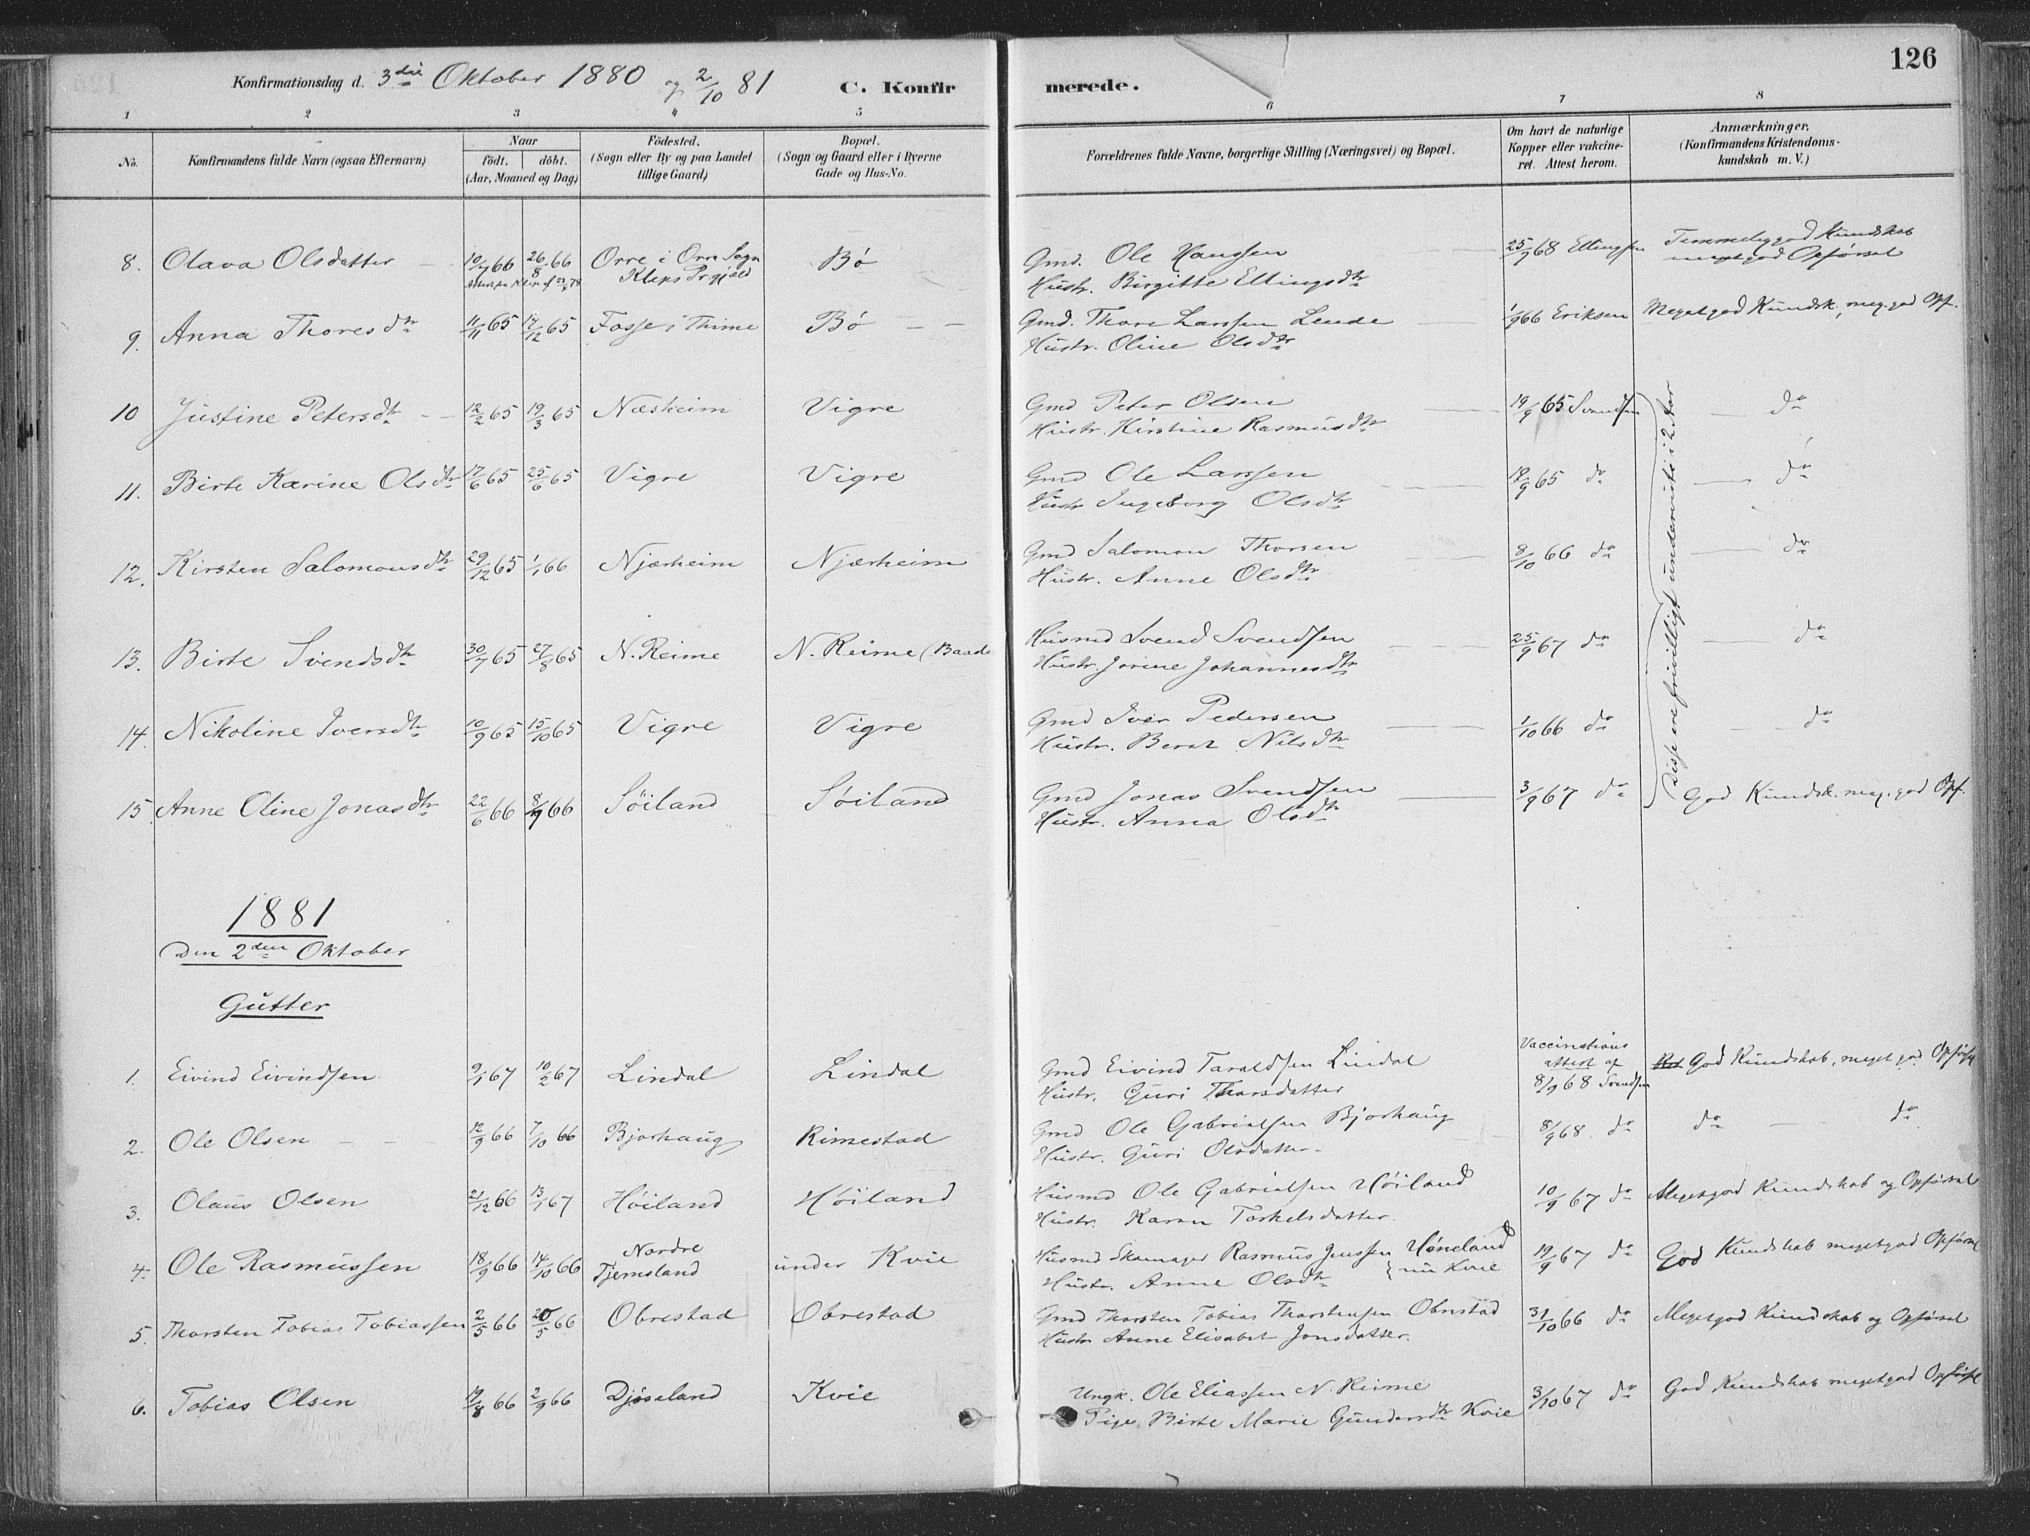 126
Konfirmationsdag d. 3die Oktober 1880 og 2/10 81 C. Konfirmerede.
1 2 3 4 5 6 7 8
No. Konfirmandens fulde Navn (ogsaa Efternavn) Naar født. døbt. (Aar, Maaned og Dag) Födested. (Sogn eller By og paa Landet tillige Gaard) Bopæl. (Sogn og Gaard eller i Byerne Gade og Hus-No. Forældrenes fulde Navne, borgerlige Stilling (Næringsvei) og Bopæl. Om havt de naturlige Kopper eller vakcineret. Attest herom. Anmærkninger. (Konfirmandens Kristendomskundskab m. V.)
8. Olava Olsdatter 10/7 66 26/8 66 Orre i Orre Sogn Bø Gmd. Ole Hanssen 25/7 68 Ellingsen Temmeliggod Kundskab
Kleps Prgjæld Hustr. Birgitte Ellingsdtr megetgod Opførsel
9. Anna Thoresdtr 11/11 65 17/12 65 Fosse i Thime Bø Gmd. Thore Larssen Lende 1/9 66 Eriksen Megetgod Kundsk, meg. god Opf.
Hustr. Oline Olsdtr
10 Justine Petersdtr 12/2 65 19/3 65 Næsheim Vigre Gmd Peter Olsen 19/9 65 Svendsen do
Hustr. Kirstine Rasmusdtr
11. Birte Karine Olsdtr 17/6 65 25/6 65 Vigre Vigre Gmd Ole Larssen 19/9 65 do do
Hustr Ingeborg Olsdtr
12. Kirsten Salomonsdtr 29/12 65 1/1 66 Njærheim Njærheim Gmd Salomon Thorsen 8/10 66 do do
Hustr. Anne Olsdtr
13. Birte Svendsdtr 30/7 65 27/8 65 N. Reime N. Reime (Baad Husmd Svend Svendsen 25/9 67 do do
Hustr. Jorine Johannesdtr
14. Nikoline Iversdtr 10/9 65 15/10 65 Vigre Vigre Gmd Iver Pedersen 1/10 66 do do
Hustr. Berat Nilsdtr
15. Anne Oline Jonasdtr 22/6 66 8/7 66 Søiland Søiland Gmd Jonas Svendsen 3/9 67 do God Kundsk. meg. god Opf.
Hustr. Anna Olsdtr
Disse ere frivilligt underviste i 2 Aar
1881
Den 2den Oktober
Gutter
1. Eivind Eivindsen 9/1 67 10/2 67 Lindal Lindal Gmd Eivind Taraldsen Lindal Vaccinations attest af 8/9 68 Svendsen God Kundskab, meget god Opførsel
Hustr. Guri Thorsdatter
2. Ole Olsen 12/9 66 7/10 66 Bjorhaug Rimestad Gmd Ole Gabrielsen Bjorhaug 8/9 68 do do do
Hustr. Guri Olsdatter
3. Olaus Olsen 21/12 66 13/1 67 Høiland Høiland Husmd Ole Gabrielsen Høiland 10/9 67 do Megetgod Kundskab og Opførsel
Hustr. Karen Torkelsdatter.
4. Ole Rasmussen 18/9 66 14/10 66 Nordre Tjemsland under Kvie Husmd Skomager Rasmus Jenssen Høneland nu Kvie 19/9 67 do God Kundskab megetgod Opførsel
Hustr. Anne Olsdtr
5. Thorsten Tobias Tobiassen 2/5 66 20/5 66 Obrestad Obrestad Gmd Thorsten Tobias Thorstensen Obrestad 31/10 66 do Megetgod Kundskab og Opførsel
Hustr Anne Elisabet Jonsdatter.
6. Tobias Olsen 19/8 66 2/9 66 Djøseland Kvie Ungk. Ole Eliassen N. Reime 3/10 67 do God Kundskab megetgod Opførsel
Pige Birte Marie Gundersdtr Kvie